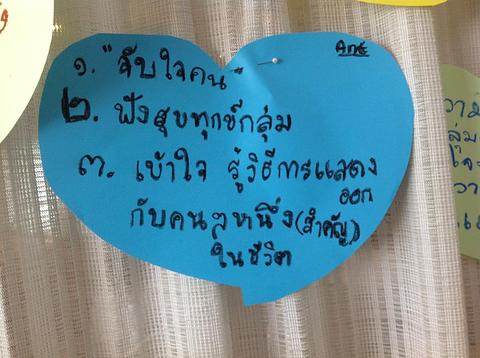 Ant
๑. "จับใจคน"
๒. ฟังสุขทุกข์กลุ่ม
๓. เข้าใจ รู้วิธีการแสดง
ออก
กับคนๆหนึ่ง(สำคัญ)
ในชีวิต